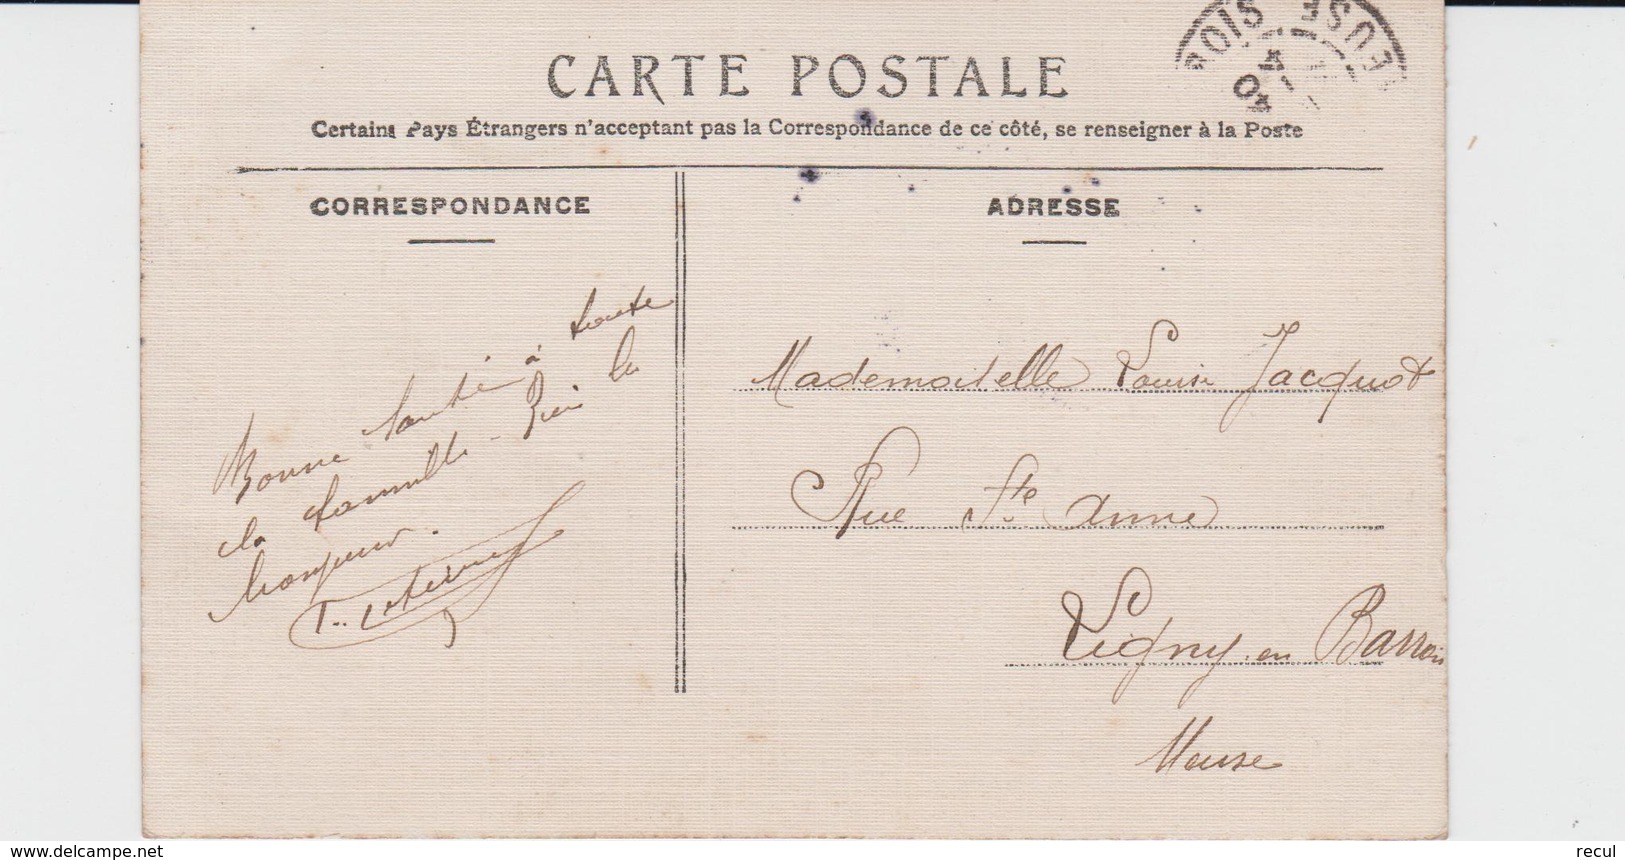 CARTE POSTALE
Certains Pays Étrangers n'acceptant pas la Correspondance de ce côté, se renseigner à la Poste
CORRESPONDANCE
Bonne Santé à toute
la famille - Bien le
bonjour.
ADRESSE
Mademoiselle Louise Jacquot
Rue Ste Anne
Ligny-en Barrois
Meuse
OIS EUSE
www.delcampe.net
recul